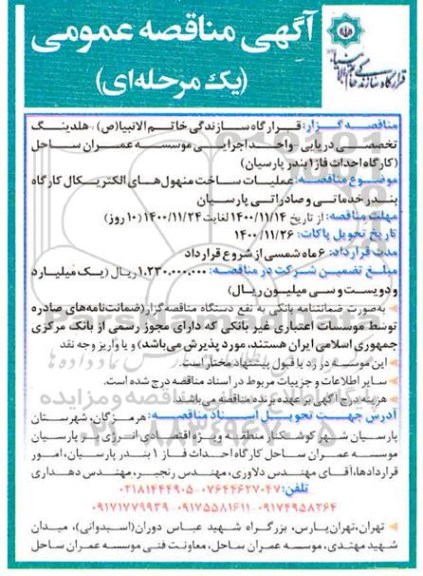 آگهی مناقصه عمومی
(یک مرحله‌ای)
قرارگاه سازندگی خاتم الانبیا(ص)
مناقصه گزار: قرارگاه سازندگی خاتم الانبیا(ص)، هلدینگ
تخصصی دریایی واحد اجرایی موسسه عمران ساحل
(کارگاه احداث فاز ۱ بندر پارسیان)
موضوع مناقصه: عملیات ساخت منهول‌های الکتریکال کارگاه
بندر خدماتی و صادراتی پارسیان
مهلت مناقصه: از تاریخ ۱۴۰۰/۱۱/۱۴ لغایت ۱۴۰۰/۱۱/۲۴ (۱۰ روز)
تاریخ تحویل پاکات: ۱۴۰۰/۱۱/۲۶
مدت قرارداد: ۶ ماه شمسی از شروع قرارداد
مبلغ تضمین شرکت در مناقصه: ۱.۲۳۰.۰۰۰.۰۰۰ ریال (یک میلیارد
و دویست و سی میلیون ریال)
به صورت ضمانتنامه بانکی به نفع دستگاه مناقصه گزار (ضمانت‌نامه‌های صادره
توسط موسسات اعتباری غیر بانکی که دارای مجوز رسمی از بانک مرکزی
جمهوری اسلامی ایران هستند، مورد پذیرش می‌باشد) و یا واریز وجه نقد
این موسسه در رد یا قبول پیشنهاد مختار است.
سایر اطلاعات و جزییات مربوط در اسناد مناقصه درج شده است.
هزینه درج آگهی بر عهده برنده مناقصه می‌باشد
آدرس جهت تحویل اسناد مناقصه: هرمزگان، شهرستان
پارسیان شهر کوشکنار منطقه ویژه اقتصادی انرژی بر پارسیان
موسسه عمران ساحل کارگاه احداث فاز ۱ بندر پارسیان، امور
قراردادها، آقای مهندس دلاوری، مهندس رنجبر، مهندس دهداری
تلفن: ۰۷۶۴۴۶۲۷۰۴۷ - ۰۲۱۸۱۴۴۴۹۰۵
۰۹۱۷۴۹۵۸۲۶۴ - ۰۹۱۷۵۵۸۱۶۱۱ - ۰۹۱۷۱۷۷۹۹۳۹
تهران، تهران پارس، بزرگراه شهید عباس دوران (اسبدوانی)، میدان
شهید مهتدی، موسسه عمران ساحل، معاونت فنی موسسه عمران ساحل